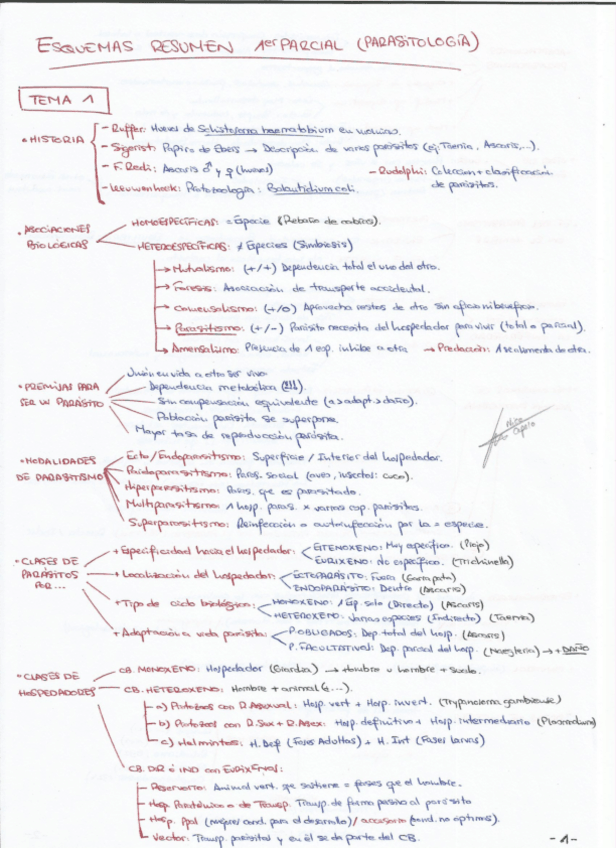 ESQUEMAS RESUMEN 1er PARCIAL (PARASITOLOGÍA)
TEMA 1
• HISTORIA
- Ruffer: Huevos de Schistosoma haematobium en momias.
- Sigerist: Papiro de Ebers → Descripción de varios parásitos (ej. Taenia, Ascaris,...).
- F. Redi: Ascaris ♂ y ♀ (huevos)
- Rudolphi: Colección + clasificación de parásitos.
- Leeuwenhoek: Protozoología: Balantidium coli.
• ASOCIACIONES BIOLÓGICAS
HOMOESPECÍFICAS: = Especie (Rebaño de cabras).
HETEROESPECÍFICAS: ≠ Especies (Simbiosis)
→ Mutualismo: (+/+) Dependencia total el uno del otro.
→ Foresis: Asociación de transporte accidental.
→ Comensalismo: (+/0) Aprovecha restos de otro sin
→ Parasitismo: (+/-) Parásito necesita del hospedador para vivir (total o parcial).
→ Amensalismo: Presencia de 1 esp. inhibe a otra → Predación: 1 se alimenta de otra.
• PREMISAS PARA SER UN PARÁSITO
Unión en vida a otro ser vivo.
Dependencia metabólica (!!!).
Sin compensación equivalente (a > adapt > daño).
Población parásita se superpone.
Mayor tasa de reproducción parásita.
• MODALIDADES DE PARASITISMO
Ecto/Endoparasitismo: Superficie / Interior del hospedador.
Paidoparasitismo: Paras. social (aves, insectos: cuco).
Hiperparasitismo: Paras. que es parasitado.
Multiparasitismo: 1 hosp. paras. x varias esp. parásitas.
Superparasitismo: Reinfección o autoinfección por la = especie.
• CLASES DE PARÁSITOS POR...
+ Especificidad hacia el hospedador:
ESTENOXENO: Muy específico. (Piojo)
EURIXENO: No específico. (Trichinella)
+ Localización del hospedador:
ECTOPARÁSITO: Fuera (Garrapata)
ENDOPARÁSITO: Dentro (Ascaris)
+ Tipo de ciclo biológico:
MONOXENO: 1 Esp. solo (Directo) (Ascaris)
HETEROXENO: Varias especies (Indirecto) (Taenia)
+ Adaptación a vida parásita:
P. OBLIGADOS: Dep. total del hosp. (Ascaris)
P. FACULTATIVOS: Dep. parcial del hosp. (Naegleria) → + DAÑO
• CLASES DE HOSPEDADORES
CB. MONOXENO: Hospedador (Giardia) → Hombre u hombre + Suelo.
CB. HETEROXENO: Hombre + animal (s...).
a) Protozoos con R. Asexual: Hosp. vert + Hosp. invert. (Trypanosoma gambiense)
b) Protozoos con R. Sex + R. Asex: Hosp. definitivo + Hosp. intermediario (Plasmodium)
c) Helmintos: H. Def (Fases Adultas) + H. Int (Fases larvas)
CB. DIR o IND con EURIXENOS:
Reservorio: Animal vert. que sostiene = fases que el hombre.
Hosp. Paraténico o de Transp. Transp. de forma pasiva al parásito
Hosp. Ppal (mejores cond. para el desarrollo) / accesorio (cond. no óptimas).
Vector: Transp. parásitos y en él se da parte del CB.
- 1 -